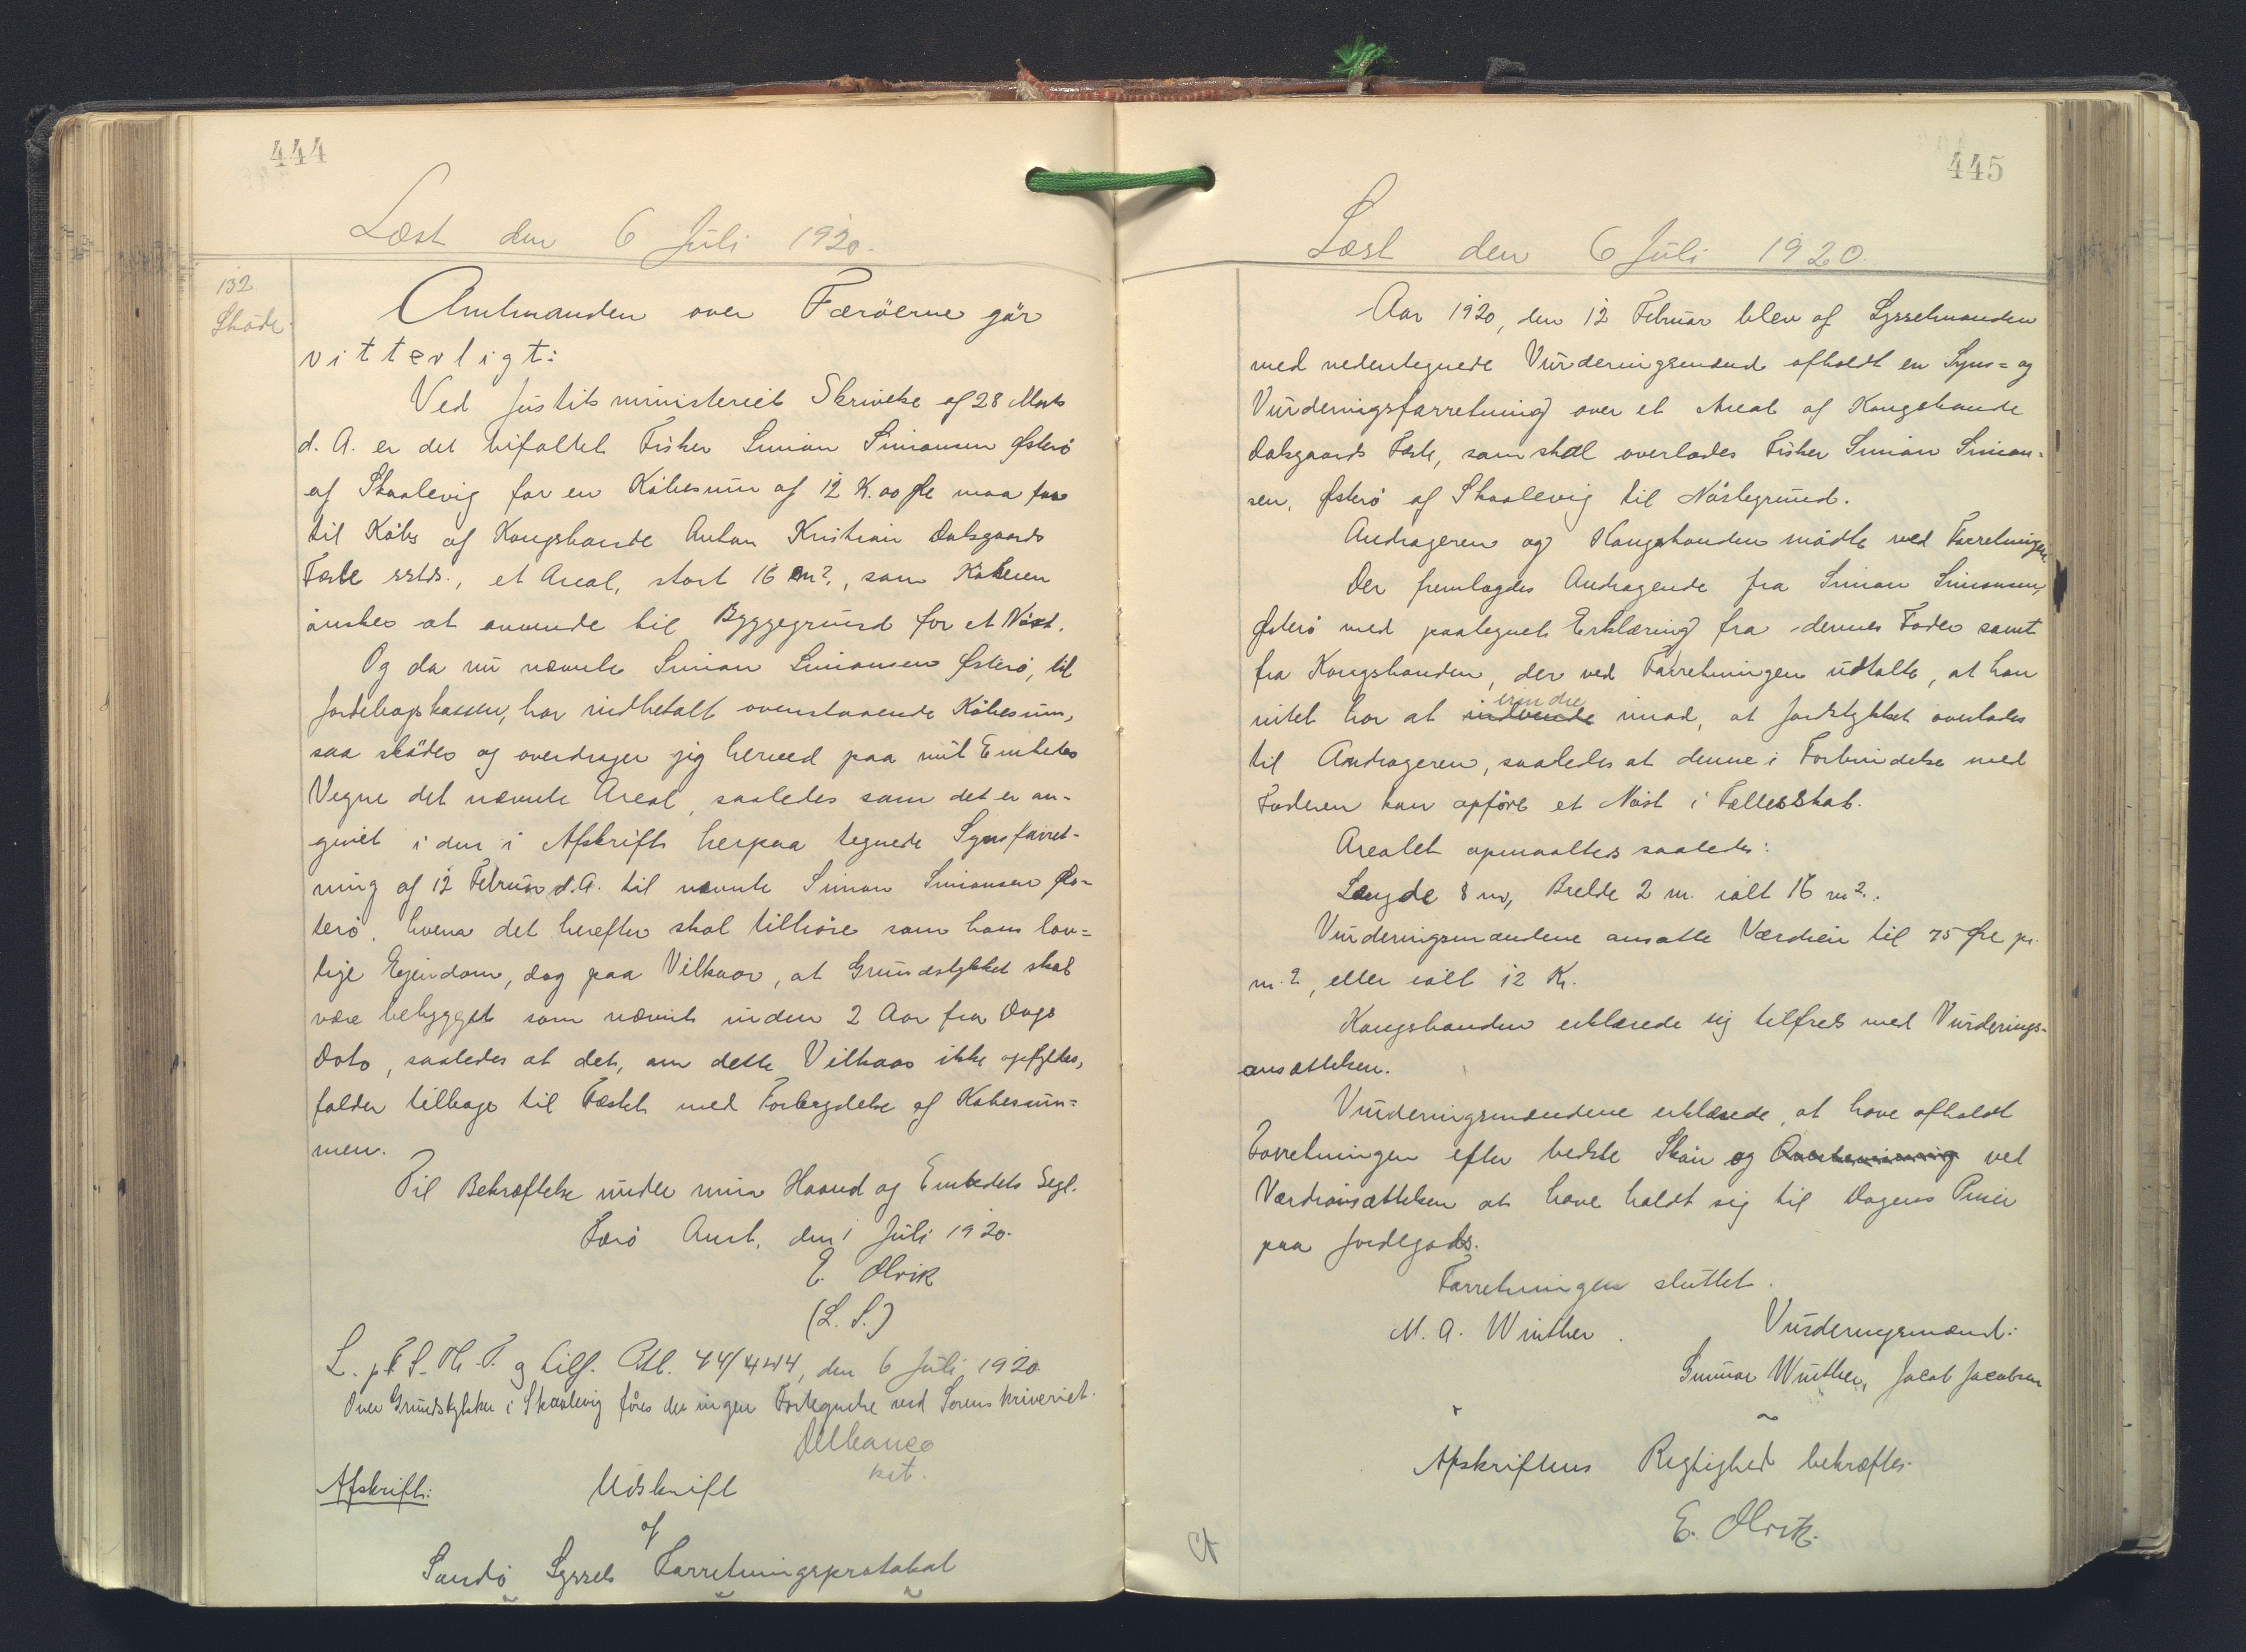 444
Læst den 6 Juli 1920.
132
Skøde.
Amtmanden over Færöerne gör
vitterligt:
Ved Justitsministeriet Skrivelse af 28 Marts
d. A. er det bifaldet Fisker Simon Simonsen Østerö
af Skaalevig for en Købesum af 12 K. 00 Øre maa faa
til Købs af Kongsbonde Anton Kristian Dalsgaards
Fæste sstds., et Areal, stort 16 m2., som Køberen
ønsker at anvende til Byggegrund for et Nøst.
Og da nu nævnte Simon Simonsen Østerö, til
Jordebogskassen, har indbetalt ovenstaaende Købesum,
saa skøder og overdrager jeg herved paa mit Embedes
Vegne det nævnte Areal, saaledes som det er an-
givet i den i Afskrift herpaa tegnede Synsforret-
ning af 12 Februar d. A. til nævnte Simon Simonsen Øs-
terö, hvem det herefter skal tilhøre som hans lov=
lige Ejendom, dog paa Vilkaar, at Grundstykket skal
være bebygget som nævnt inden 2 Aar fra Dags
Dato, saaledes at det, om dette Vilkaar ikke opfyldes,
falder tilbage til Fæstet med Fortabelse af Købesum=
men.
Til Bekræftelse under min Haand og Embedets Segl.
Færö Amt, den 1 Juli 1920.
E. Olrik
(L. S.)
L. p. F. S. Th. T. og tilf. Ptl. 44/444, den 6 Juli 1920
Over Grundstykker i Skaalevig føres der ingen Fortegnelse ved Sorenskriveriet.
kst.
Afskrift:
Udskrift
af
Sandö Syssels Forretningsprotokol
445
Læst den 6 Juli 1920.
Aar 1920, den 12 Februar blev af Sysselmanden
med nedentegnede Vurderingsmænd afholdt en Syns= og
Vurderingsforretning over et Areal af Kongsbonde
Dalsgaards Fæste, som skal overlades Fisker Simon Simon=
sen, Østerö af Skaalevig til Nöstegrund.
Andrageren og Kongsbonden mødte ved Forretningen.
Der fremlagdes Andragende fra Simon Simonsen,
Østerö med paategnet Erklæring fra dennes Fader samt
fra Kongsbonden, der ved Forretningen udtalte, at han
erindre
intet har at indvende imod, at Jordstykket overlades
til Andrageren, saaledes at denne i Forbindelse med
Faderen kan opføre et Nøst i Fællesskab.
Arealet opmaaltes saaledes:
Længde 8 m, Bredde 2 m. ialt 16 m2.
Vurderingsmændene ansatte Værdien til 75 Øre pr.
m.2, eller ialt 12 Kr.
Kongsbonden erklærede sig tilfreds med Vurderings-
ansættelsen.
Vurderingsmændene erklærede, at have afholdt
Forretningen efter bedste Skøn og ved
Værdiansættelsen at have holdt sig til Dagens Priser
paa Jordegods.
Forretningen sluttet.
M. A. Winther.
Vurderingsmænd:
Gunnar Winther, Jacob Jacobsen
Afskriftens Rigtighed bekræftes.
E. Olrik.